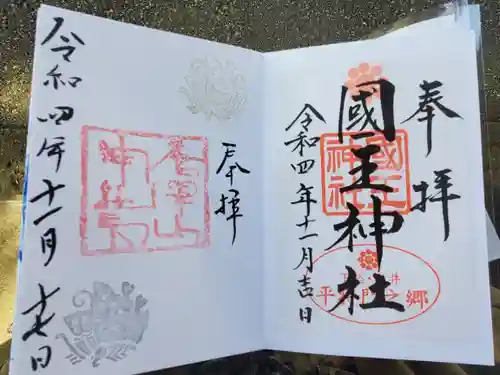 奉拝
國王神社
國王神社
平門之郷
令和四年十一月吉日
奉拝
令和四年十一月十七日